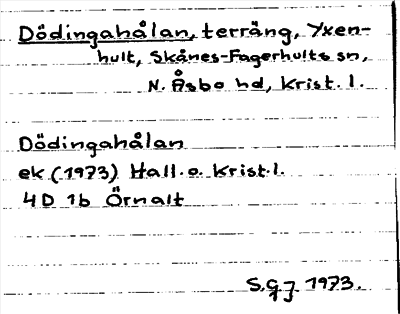 Dödingahålan, terräng, Yxen-
hult, Skånes-Fagerhults sn,
N. Åsbo hd, Krist. l.
Dödingahålan
ek (1973) Hall. o. Krist. l.
4D 1b Örnalt
S.G J 1973.